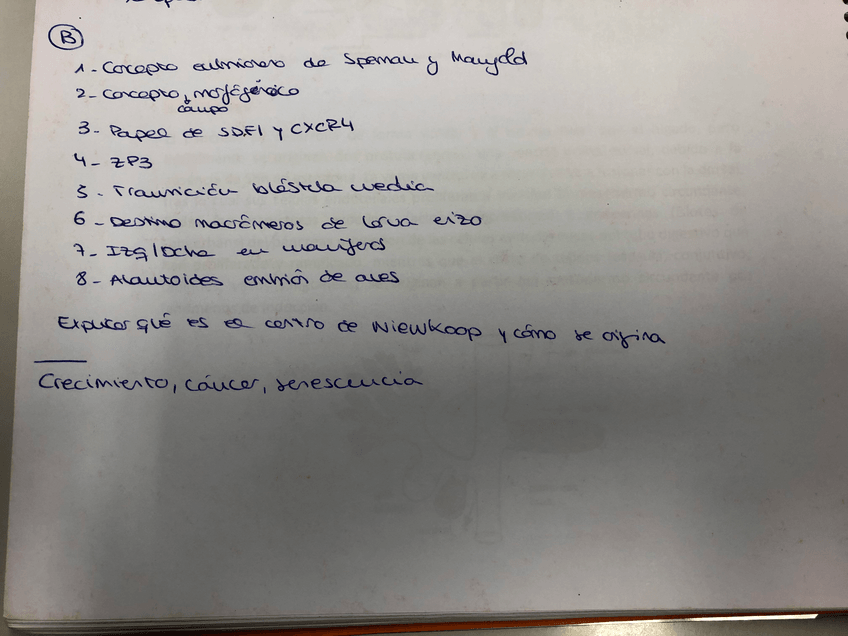 B
1- Concepto culminoso de Speman y Mangold
2- Concepto, morfogénico
campo
3- Papel de SDF1 y CXCR4
4- ZP3
5- Transición blástula media
6- Destino macrómeros de larva erizo
7- Izq/Dcha en mamíferos
8- Alantoides embrión de aves
Explicar qué es el centro de Niewkoop y cómo se origina
Crecimiento, cáncer, senescencia